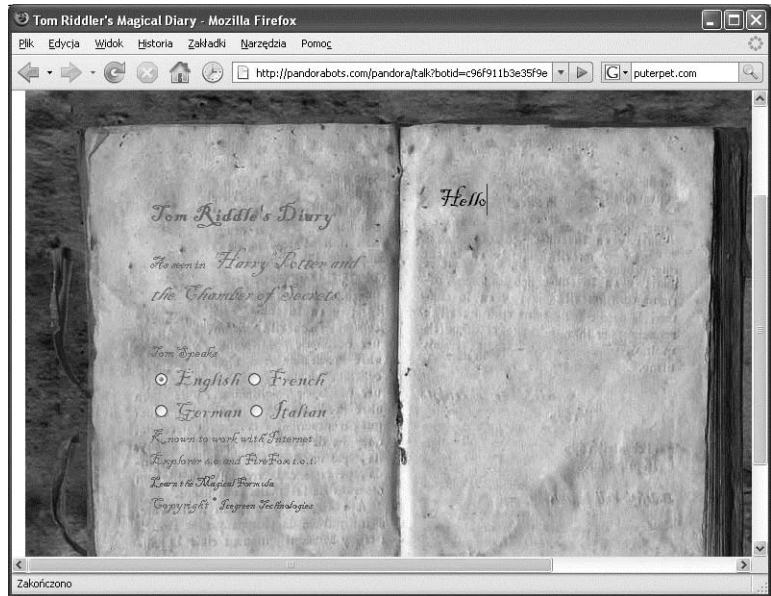 Tom Riddler's Magical Diary - Mozilla Firefox
Plik Edycja Widok Historia Zakładki Narzędzia Pomoc
http://pandorabots.com/pandora/talk?botid=c96f911b3e35f9e puterpet.com
Hello
Tom Riddle's Diary
As seen in Harry Potter and
the Chamber of Secrets
Tom Speaks
English French
German Italian
Known to work with Internet
Explorer 6.0 and FireFox 1.0.1.
Learn the Magical Formula
Copyright © Icegreen Technologies
Zakończono